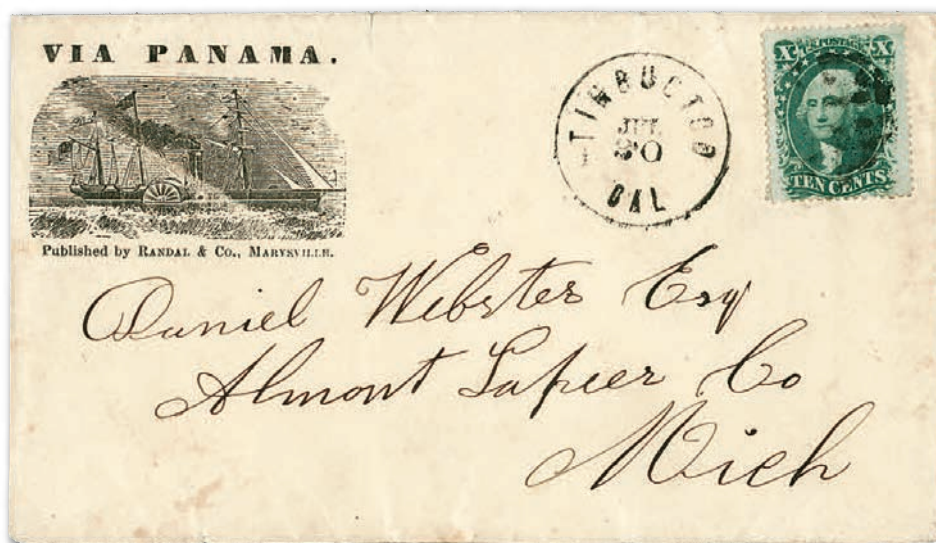 VIA PANAMA.
Published by RANDAL & CO., MARYSVILLE.
TIMBUCTOO
30
CAL
X U.S. POSTAGE X
TEN CENTS
Daniel Webster Esq
Almont Lapeer Co
Mich